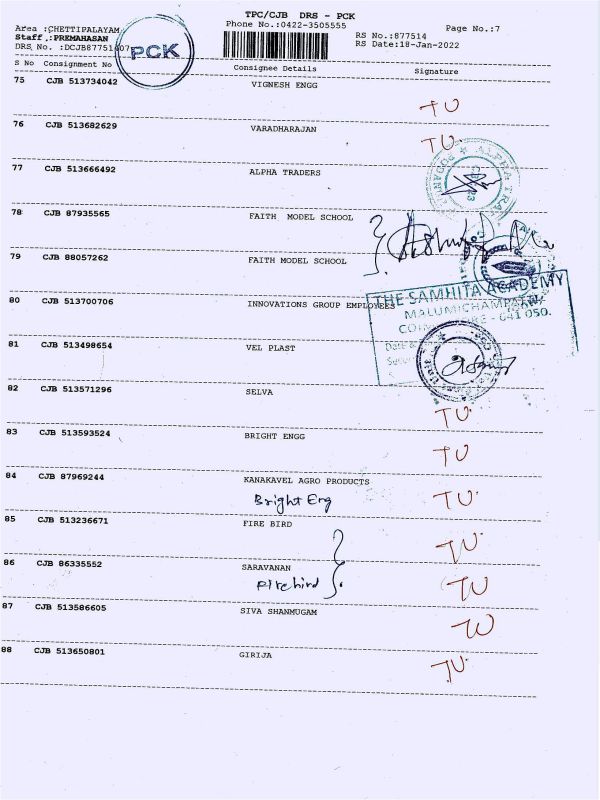 TPC/CJB DRS - PCK
Phone No.:0422-3505555
Page No.:7
Area :CHETTIPALAYAM
Staff :PREMAHASAN
DRS No. :DCJB87751407
PCK
RS No.:877514
RS Date:18-Jan-2022
S No Consignment No Consignee Details Signature
75 CJB 513734042 VIGNESH ENGG
TU
76 CJB 513682629 VARADHARAJAN
TU
77 CJB 513666492 ALPHA TRADERS
78 CJB 87935565 FAITH MODEL SCHOOL
79 CJB 88057262 FAITH MODEL SCHOOL
80 CJB 513700706 INNOVATIONS GROUP EMPLOYEES
THE SAMHITA ACADEMY
MALUMICHAMPATTI
641 050.
81 CJB 513498654 VEL PLAST
82 CJB 513571296 SELVA
TU
83 CJB 513593524 BRIGHT ENGG
TU
84 CJB 87969244 KANAKAVEL AGRO PRODUCTS
Bright Eng TU
85 CJB 513236671 FIRE BIRD
TU
86 CJB 86335552 SARAVANAN
Firebird TU
87 CJB 513586605 SIVA SHANMUGAM
TU
88 CJB 513650801 GIRIJA
TU